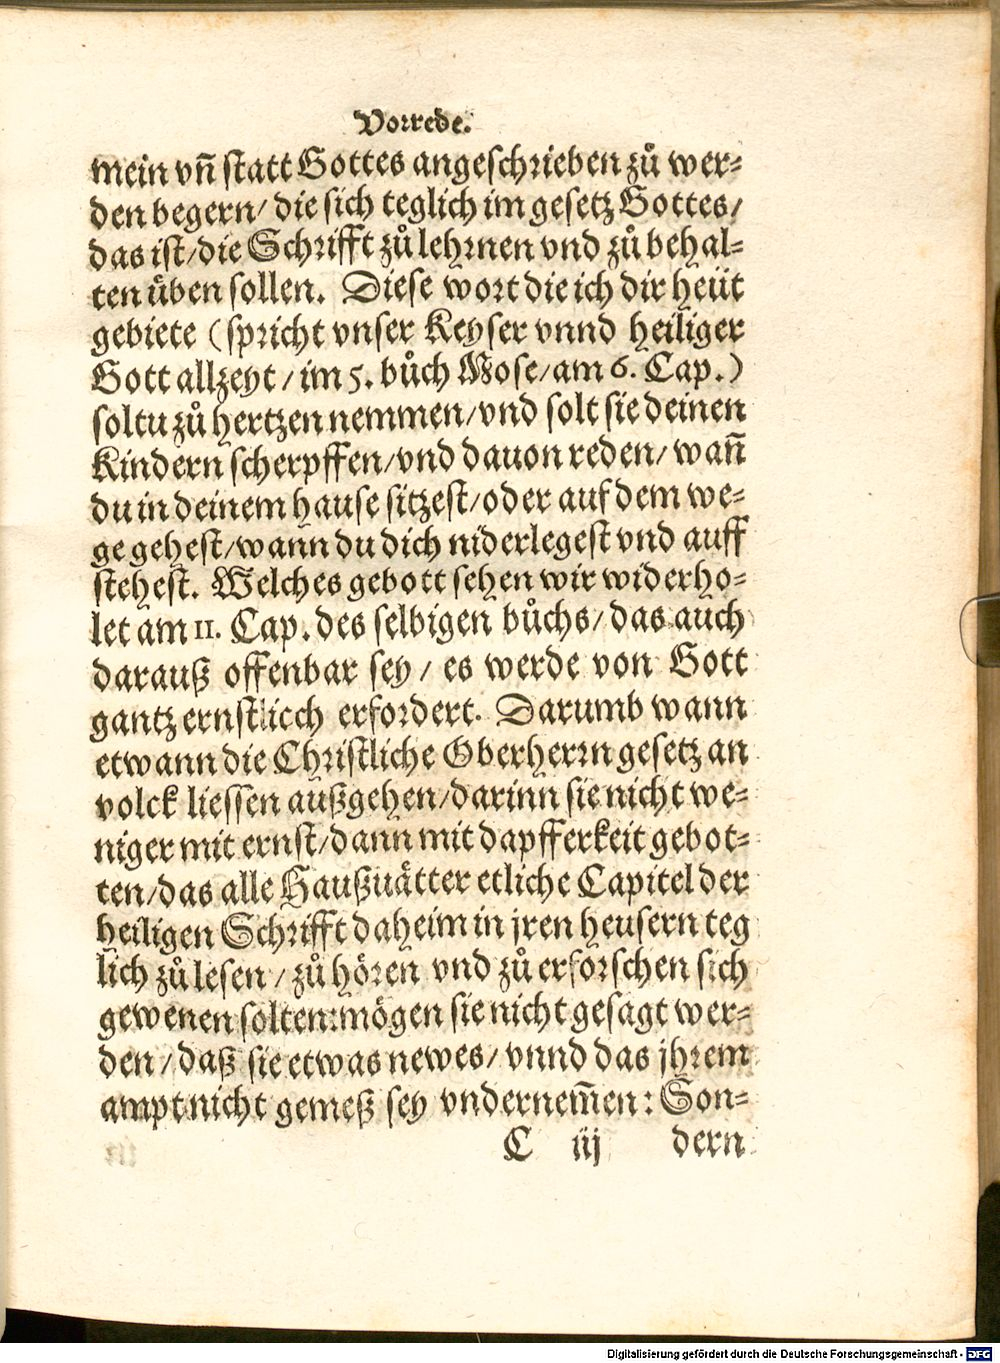 Vorrede.
mein vn̄ statt Gottes angeschrieben zů wer⸗
den begern/ die sich teglich im gesetz Gottes/
das ist/die Schrifft zů lehrnen vnd zů behal⸗
ten üben sollen. Diese wort die ich dir heüt
gebiete (spricht vnser Keyser vnnd heiliger
Gott allzeyt / im 5. bůch Mose/am 6. Cap.)
soltu zů hertzen nemmen/vnd solt sie deinen
Kindern scherpffen/vnd dauon reden/ wan̄
du in deinem hause sitzest/oder auf dem we⸗
ge gehest/wann du dich niderlegest vnd auff
stehest. Welches gebott sehen wir widerho⸗
let am 11. Cap. des selbigen bůchs/das auch
darauß offenbar sey / es werde von Gott
gantz ernstlicch erfordert. Darumb wann
etwann die Christliche Oberherrn gesetz an
volck liessen außgehen/darinn sie nicht we⸗
niger mit ernst/dann mit dapfferkeit gebot⸗
ten/das alle Haußuätter etliche Capitel der
heiligen Schrifft daheim in jren heusern teg
lich zů lesen / zů hören vnd zů erforschen sich
gewenen solten:mögen sie nicht gesagt wer⸗
den / daß sie etwas newes/ vnnd das jhrem
ampt nicht gemeß sey vndernem̄en : Son⸗
C iij dern
Digitalisierung gefördert durch die Deutsche Forschungsgemeinschaft - DFG